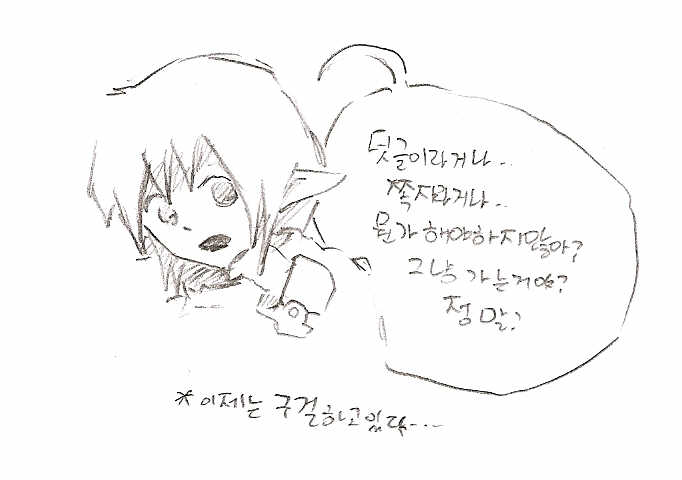 덧글이라거나..
쪽지라거나..
뭔가 해야하지않아?
그냥 가는거야?
정말?
*이제는 구걸하고있다...